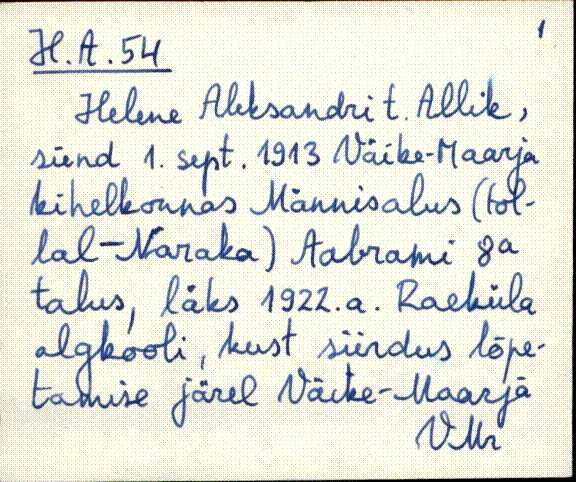 1
H.A.54
Helene Aleksandri t. Allik,
sünd 1. sept. 1913 Väike-Maarja
kihelkonnas Männisalus (tol-
lal-Naraka) Aabrami 8a
talus, läks 1922.a. Raeküla
algkooli, kust siirdus lõpe-
tamise järel Väike-Maarja
VMr